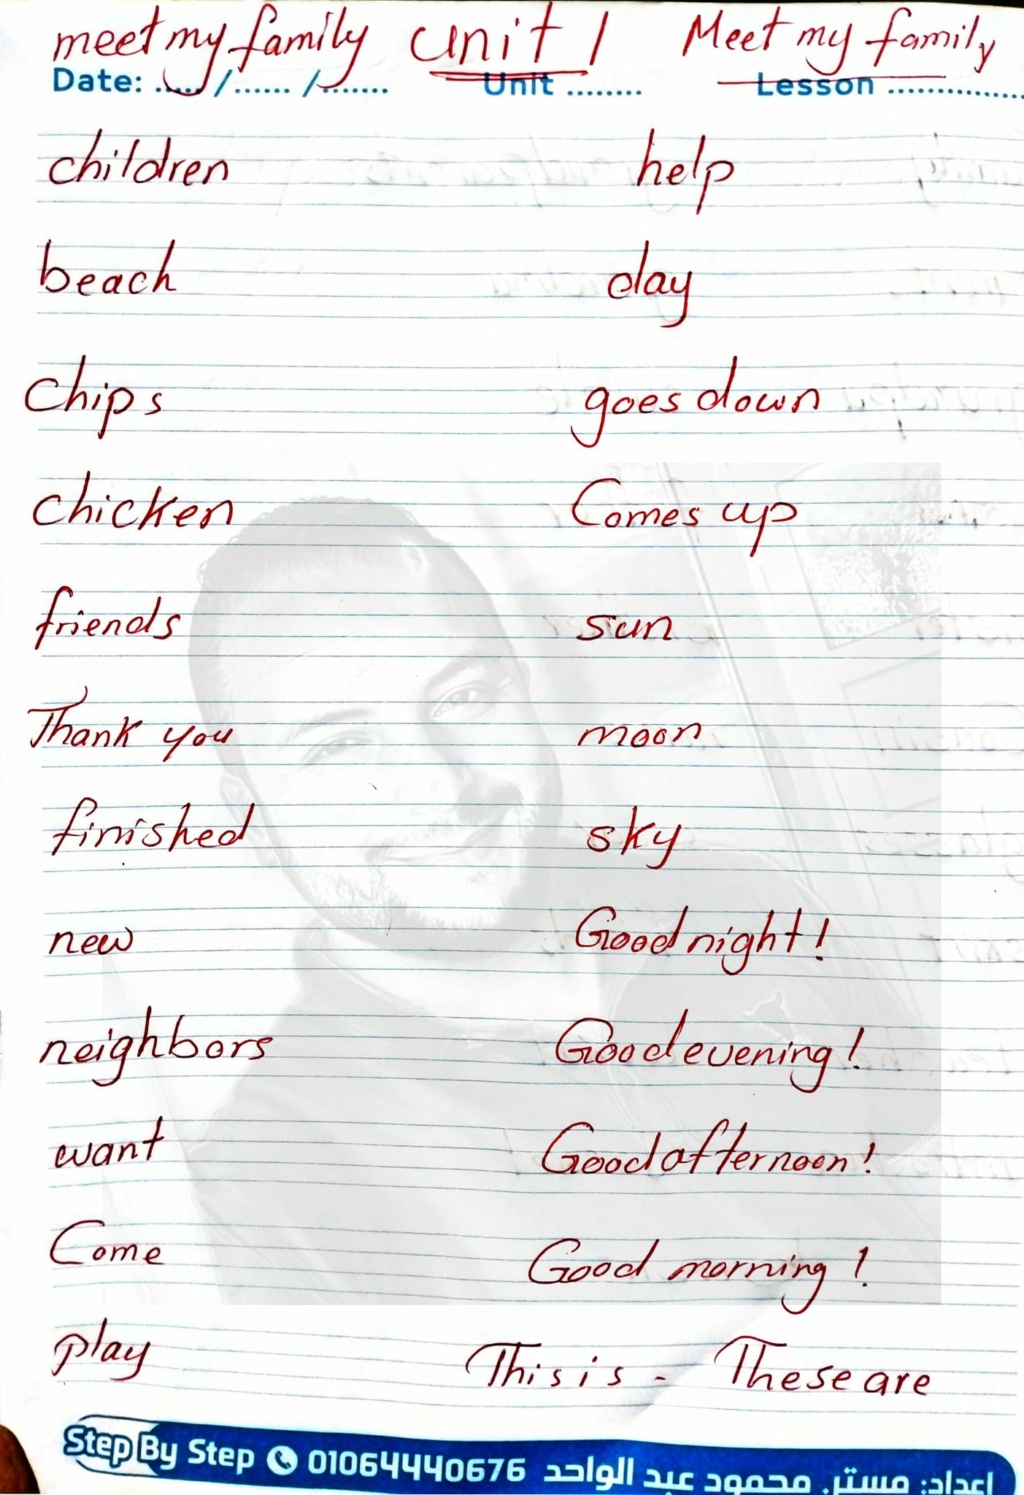 meet my family Unit 1 Meet my family
Date: ...../....../....... Unit ........ Lesson ..............
children help
beach day
Chips goes down
chicken Comes up
friends sun
Thank you moon
finished sky
new Good night!
neighbors Good evening!
want Good afternoon!
Come Good morning!
play This is - These are
Step By Step 01064440676 اعداد: مستر. محمود عبد الواحد